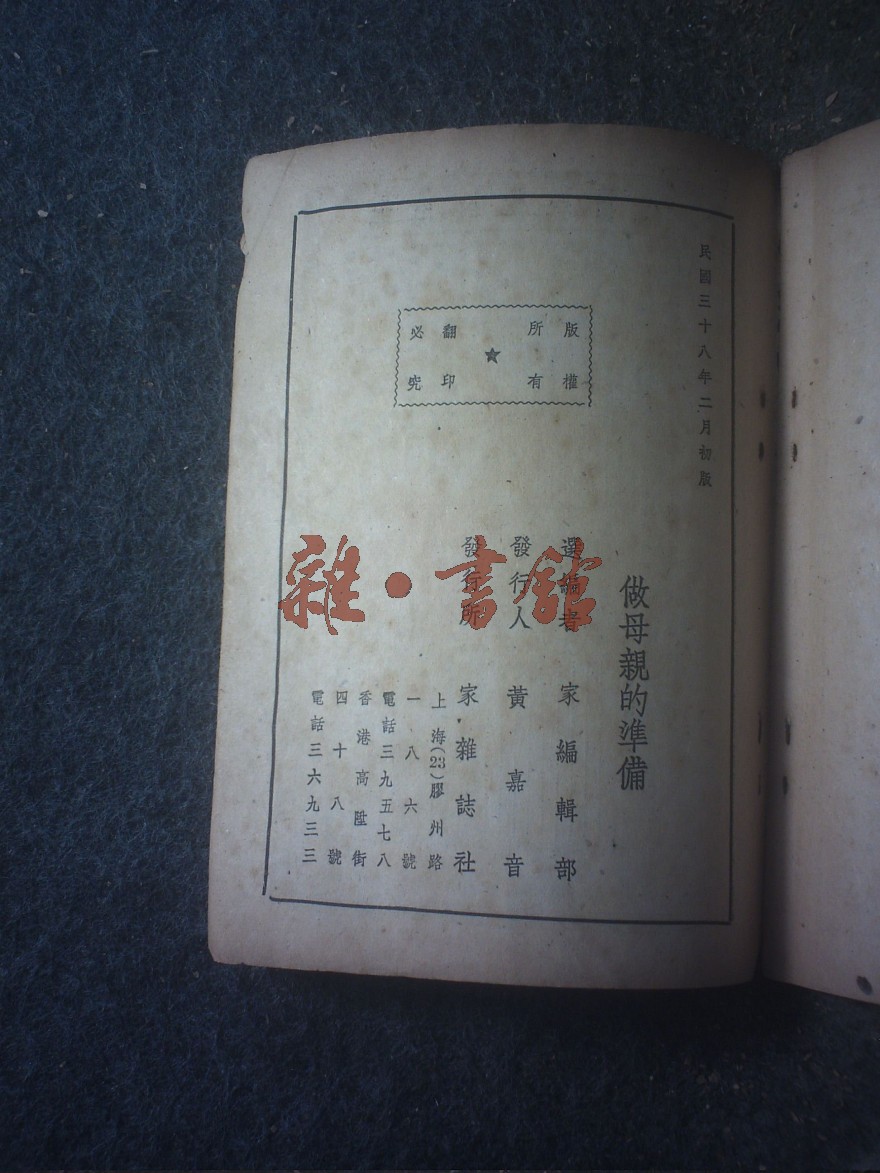 民國三十八年二月初版
版權
所有
★
翻印
必究
做母親的準備
選編者 家編輯部
發行人 黃嘉音
發行所 家雜誌社
上海(23)膠州路
一八六號
電話三九五七八
香港高陞街
四十八號
電話三六九三三
雜·書館